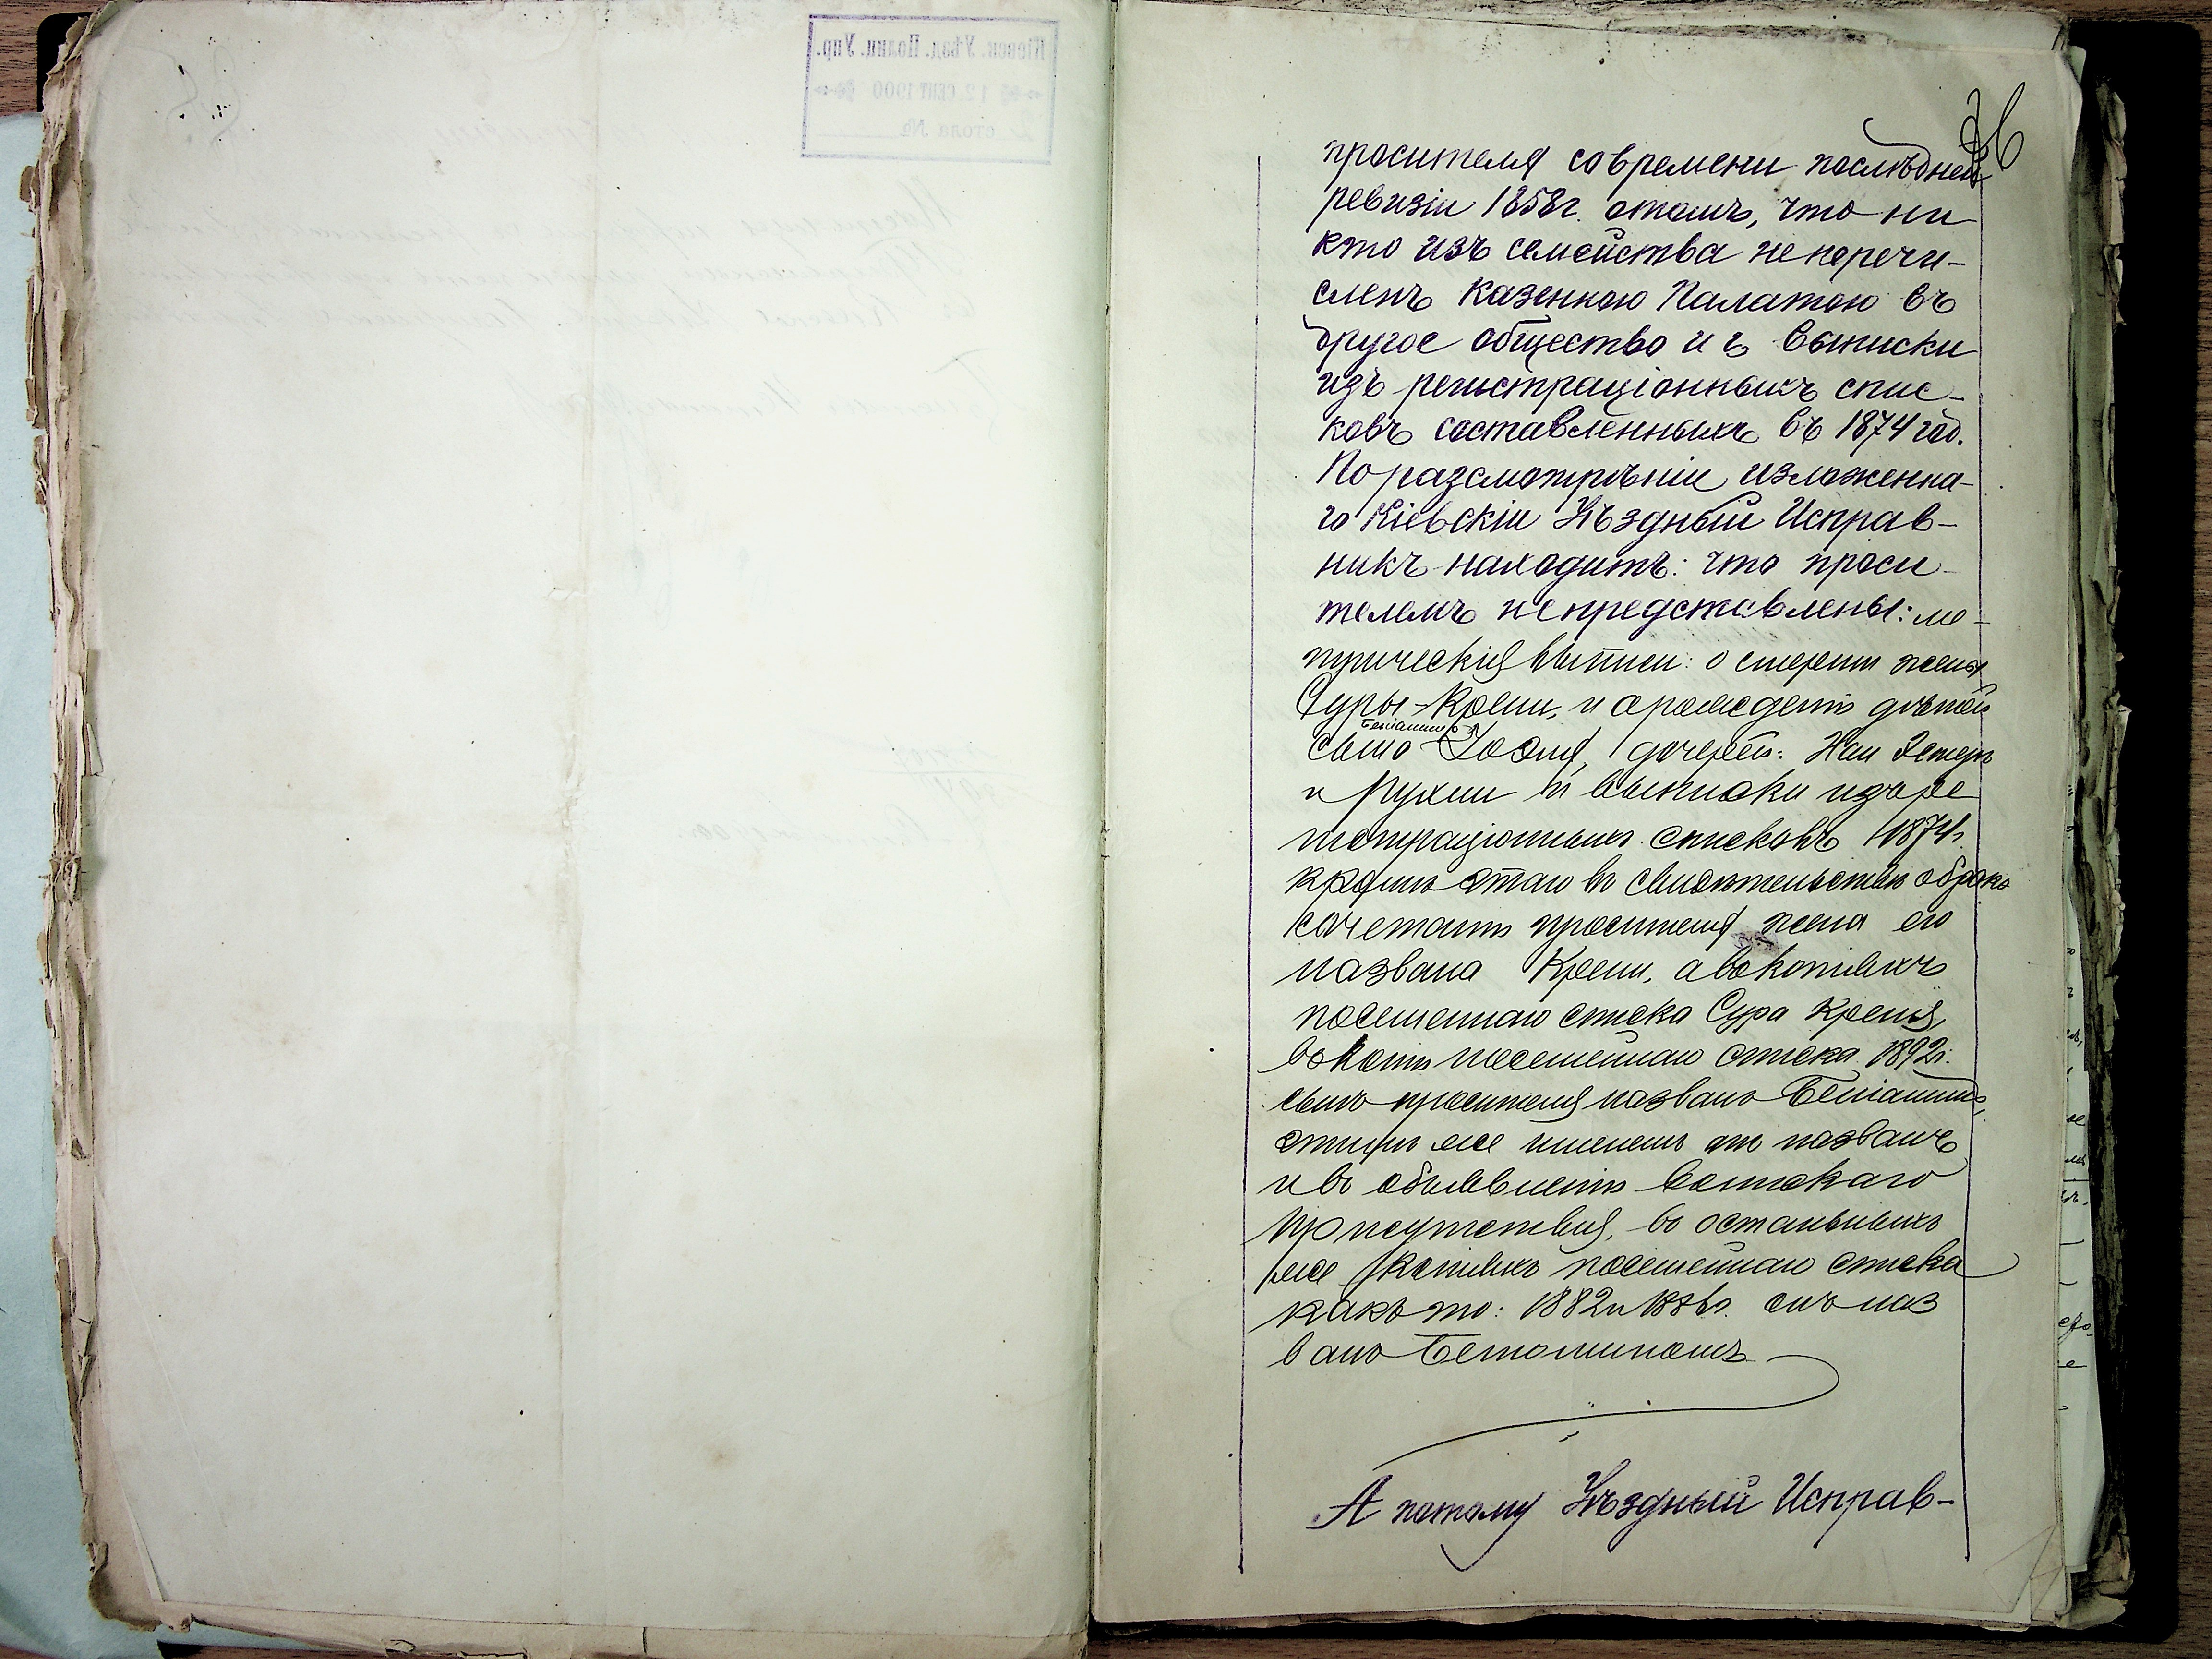 Кіевск. Уѣзд. Полиц. Упр.
12 СЕНТ 1900
2 стола №
26
просителя современи послѣдней
ревизіи 1858г. отомъ, что ни
кто изъ семейства неперечи-
сленъ Казенною Палатою въ
другое общество и г, выписки
изъ регистраціонныхъ спис-
ковъ составленныхъ въ 1874 год.
По разсмотрѣніи изложенна-
го Кіевскій Уѣздный Исправ-
никъ находитъ: что проси-
телемъ непредставлены: ме-
трическія выписи: о смерти жены
Суры-Крейни, и орожденіи дѣтей
Беніамина
сына Іося, дочерей: Хаи Эстеръ
и Рухли и выписки изъ ре
гистраціонныхъ списковъ 1874г.
кромѣ этаго въ свидѣтельствѣ обрако
сочетаніи просителя жена его
названа Крейни, а вокопіяхъ
посемейнаго списка Сура Крейня,
вокопіи посемейнаго списка 1892г.
сынъ просителя названъ Беніаминъ,
этимъ же именемъ онъ названъ
и въ объявленіи Воинскаго
Присутствія, во остальныхъ
же копіяхъ посемейнаго списка
какъ то: 1882 и 1886г. онъ наз
ванъ
А потому Уѣздный Исправ-